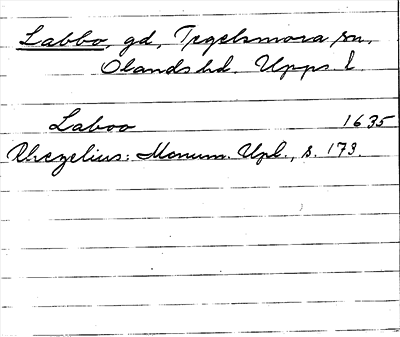 Labbo, gd, Tegelsmora sn,
Olands hd. Upps l.
Laboo 1635
Rhezelius: Monum. Upl., s. 173.